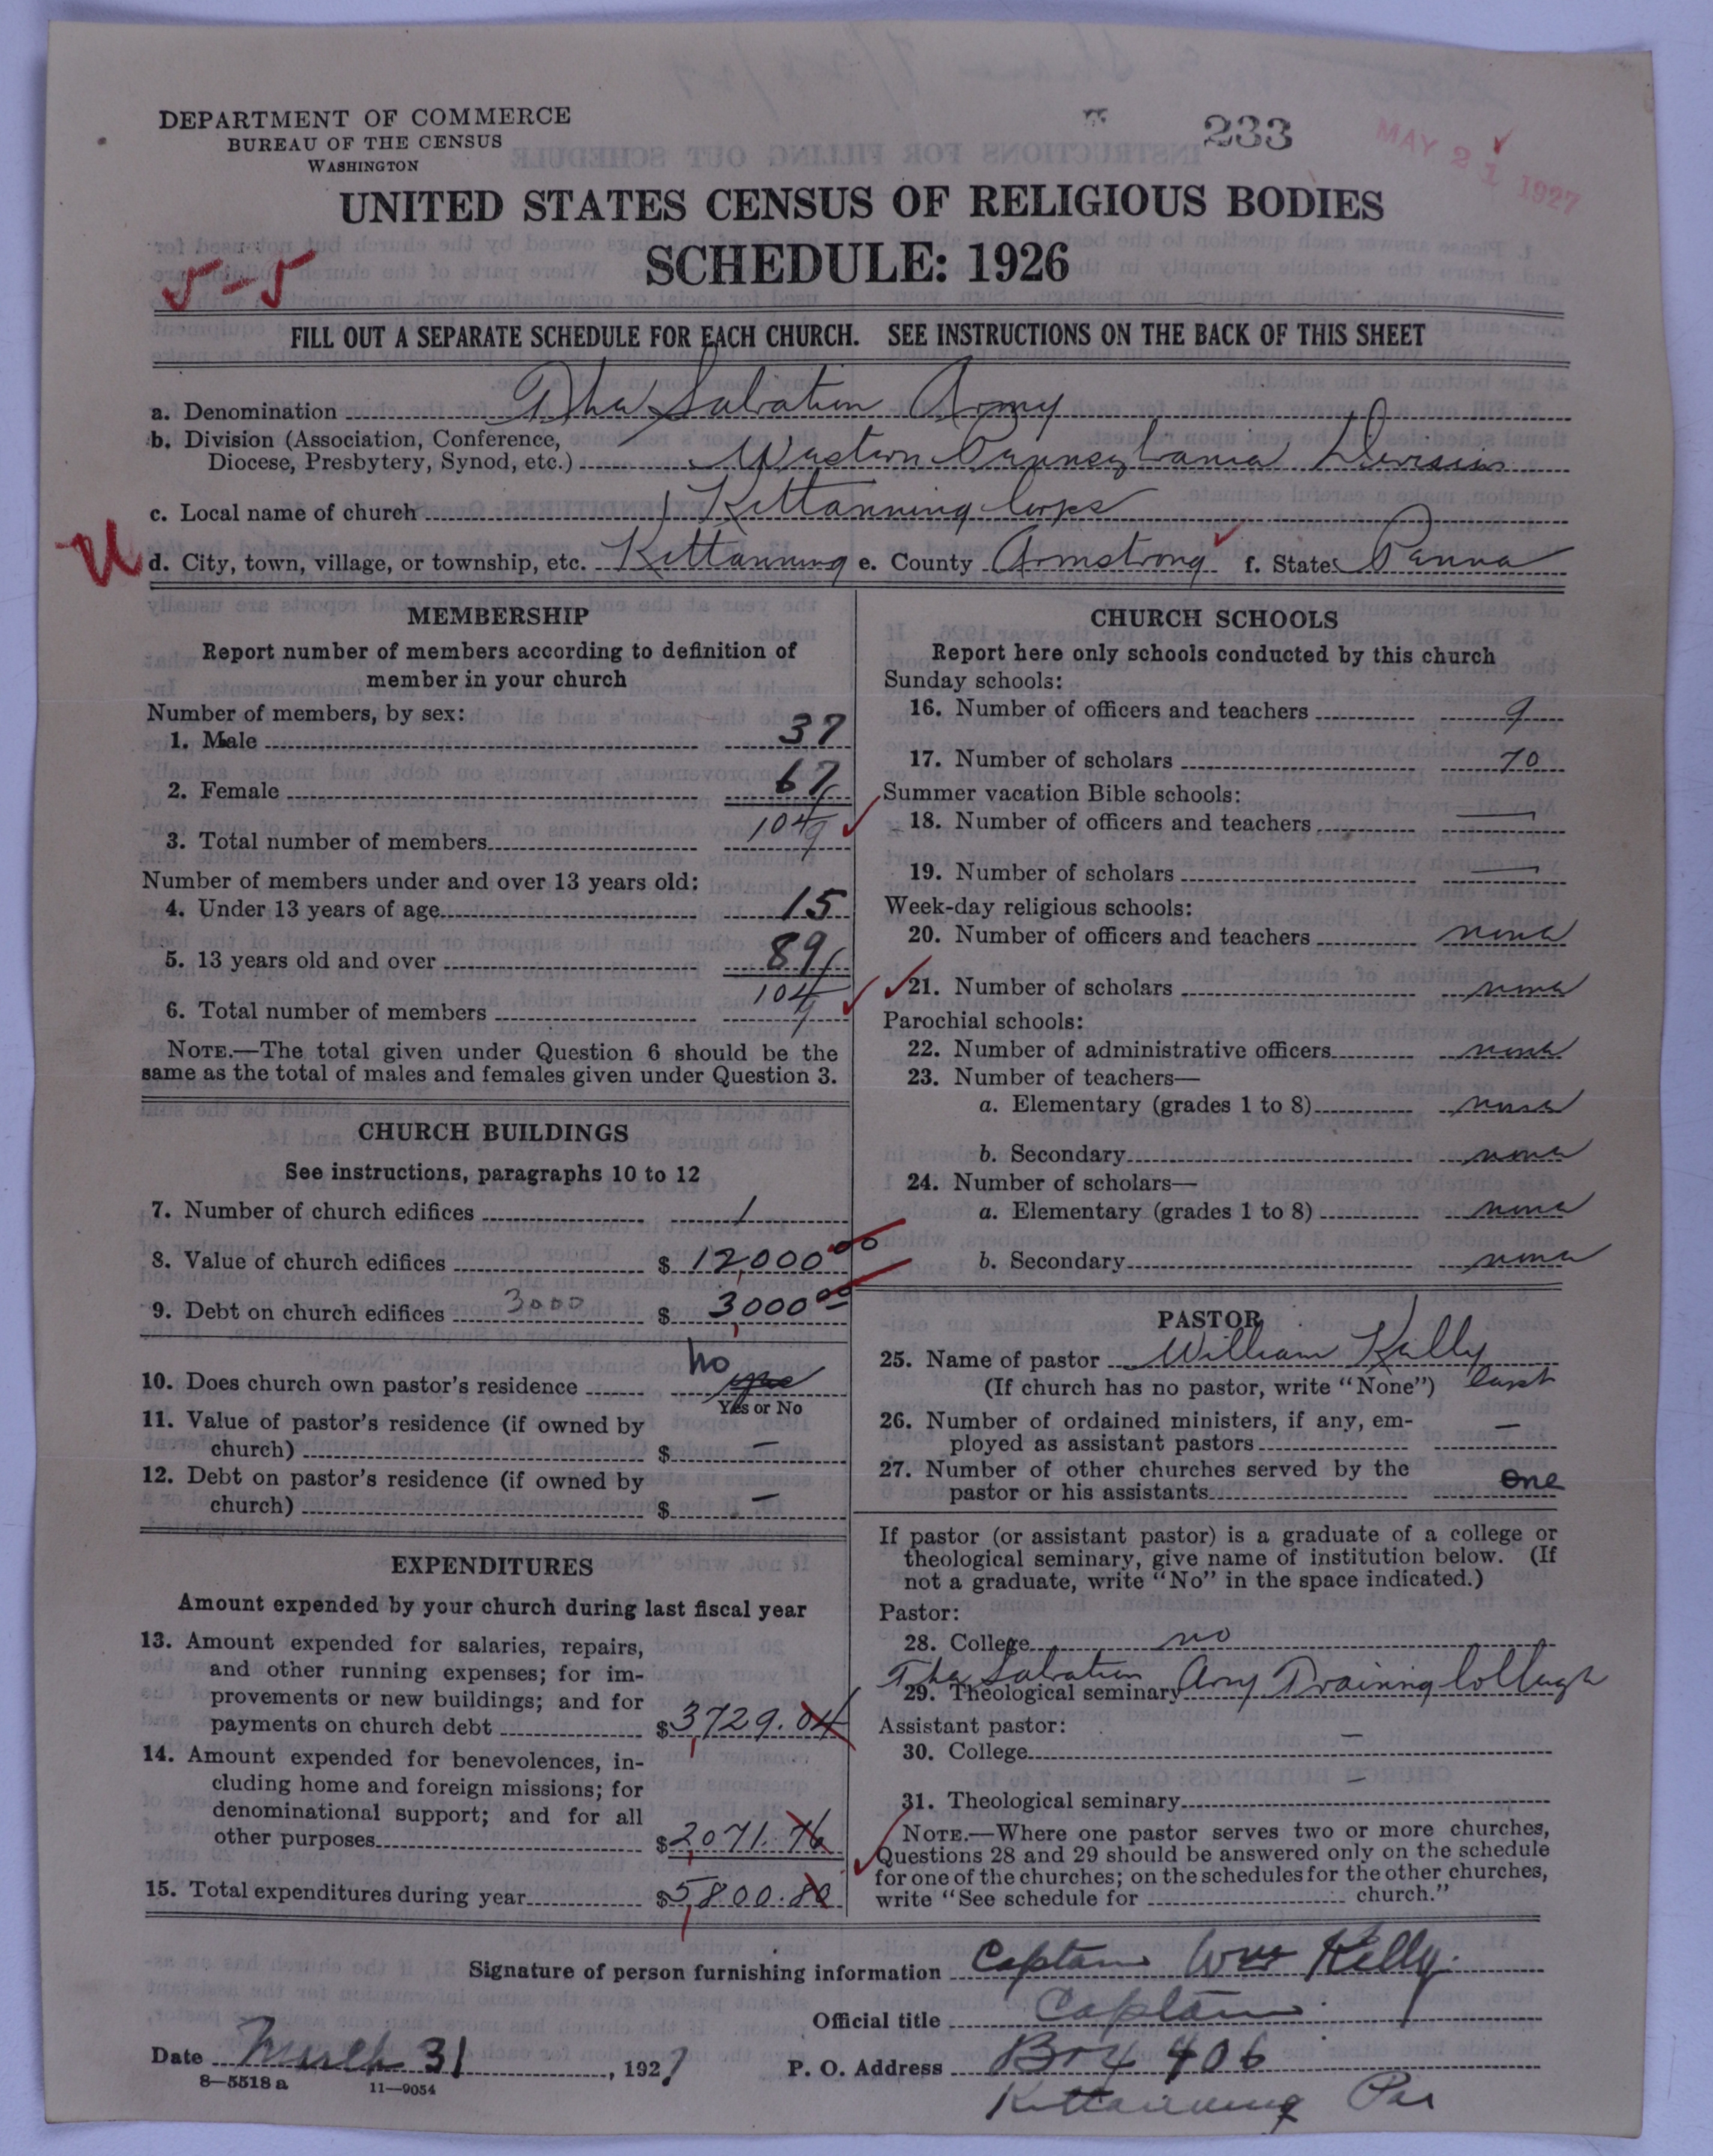 DEPARTMENT OF COMMERCE
BUREAU OF THE CENSUS
WASHINGTON
233
MAY 21 1927
UNITED STATES CENSUS OF RELIGIOUS BODIES
SCHEDULE: 1926
5-5
FILL OUT A SEPARATE SCHEDULE FOR EACH CHURCH. SEE INSTRUCTIONS ON THE BACK OF THIS SHEET
a. Denomination The Salvation Army
b. Division (Association, Conference,
Diocese, Presbytery, Synod, etc.) Western Pennsylvania Division
c. Local name of church Kittanning Corps
U
d. City, town, village, or township, etc. Kittanning e. County Armstrong f. State Penna
MEMBERSHIP
Report number of members according to definition of
member in your church
Number of members, by sex:
1. Male 37
2. Female 67
3. Total number of members 104
Number of members under and over 13 years old:
4. Under 13 years of age 15
5. 13 years old and over 89
6. Total number of members 104
NOTE.—The total given under Question 6 should be the
same as the total of males and females given under Question 3.
CHURCH BUILDINGS
See instructions, paragraphs 10 to 12
7. Number of church edifices 1
8. Value of church edifices $ 12,000 00
9. Debt on church edifices 3000 $ 3,000 00
10. Does church own pastor's residence No
Yes or No
11. Value of pastor's residence (if owned by
church) $ —
12. Debt on pastor's residence (if owned by
church) $ —
EXPENDITURES
Amount expended by your church during last fiscal year
13. Amount expended for salaries, repairs,
and other running expenses; for im-
provements or new buildings; and for
payments on church debt $3,729.04
14. Amount expended for benevolences, in-
cluding home and foreign missions; for
denominational support; and for all
other purposes $2,071.76
15. Total expenditures during year $5,800.80
CHURCH SCHOOLS
Report here only schools conducted by this church
Sunday schools:
16. Number of officers and teachers 9
17. Number of scholars 70
Summer vacation Bible schools:
18. Number of officers and teachers —
19. Number of scholars —
Week-day religious schools:
20. Number of officers and teachers none
21. Number of scholars none
Parochial schools:
22. Number of administrative officers none
23. Number of teachers—
a. Elementary (grades 1 to 8) none
b. Secondary none
24. Number of scholars—
a. Elementary (grades 1 to 8) none
b. Secondary none
PASTOR
25. Name of pastor William Kelly
(If church has no pastor, write "None") Capt
26. Number of ordained ministers, if any, em-
ployed as assistant pastors —
27. Number of other churches served by the
pastor or his assistants one
If pastor (or assistant pastor) is a graduate of a college or
theological seminary, give name of institution below. (If
not a graduate, write "No" in the space indicated.)
Pastor:
28. College no
The Salvation Army Training College
29. Theological seminary
Assistant pastor:
30. College —
31. Theological seminary —
NOTE.—Where one pastor serves two or more churches,
Questions 28 and 29 should be answered only on the schedule
for one of the churches; on the schedules for the other churches,
write "See schedule for church."
Signature of person furnishing information Captain Wm Kelly.
Official title Captain
Date March 31, 1927 P. O. Address Box 406
8—5518 a 11—9054
Kittanning Pa